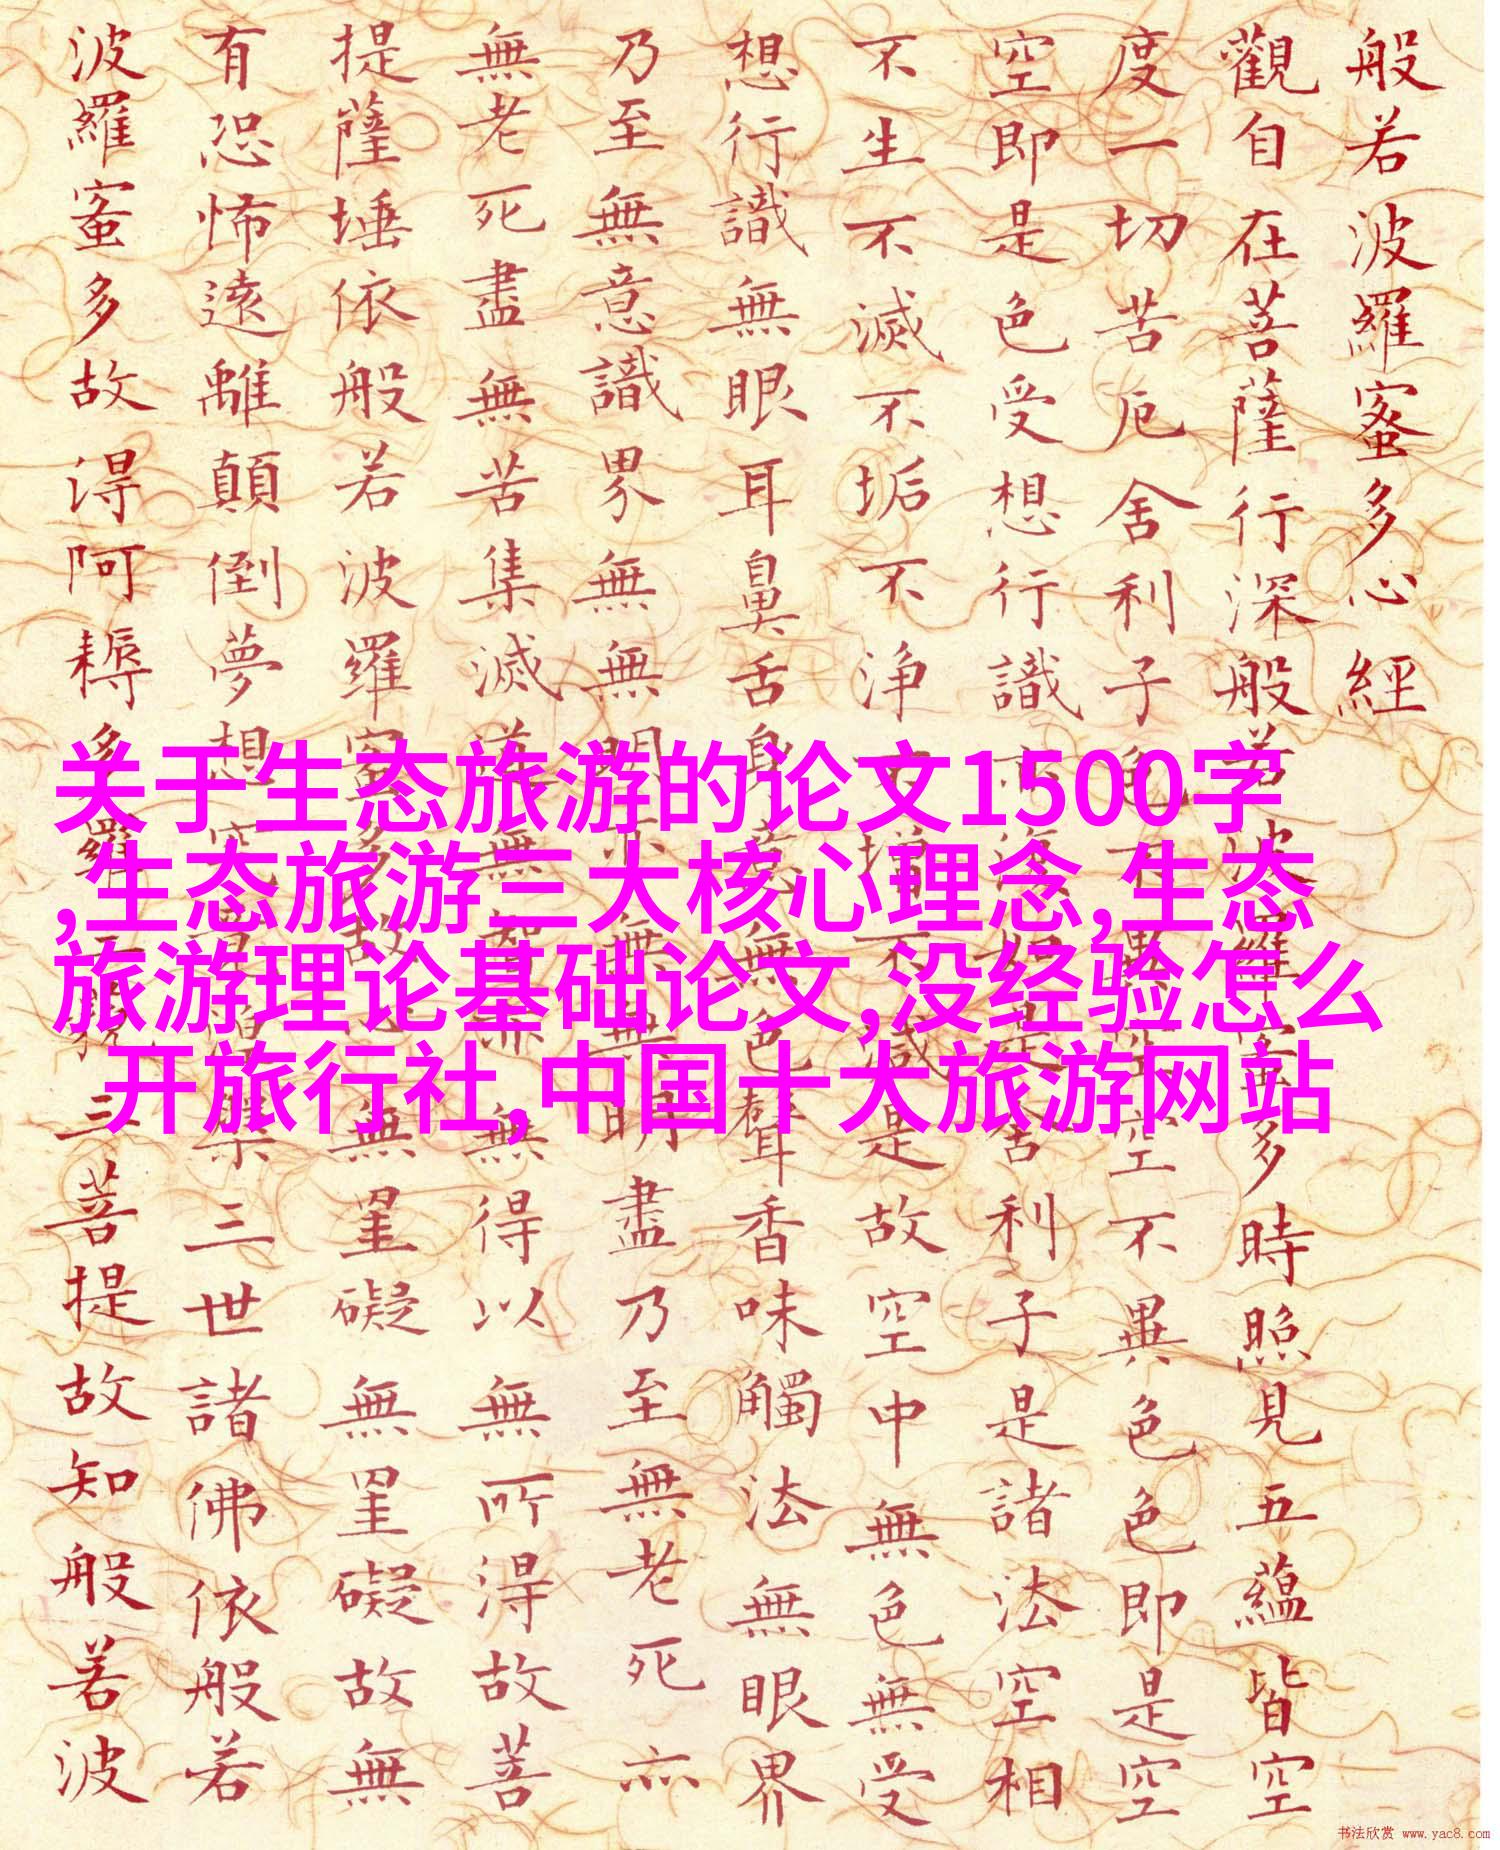 般若波羅蜜多心經
觀自在菩薩行深般若波羅蜜多時照見五蘊皆空
度一切苦厄舍利子色不異空空不異色色即是空
空即是色受想行識亦復如是舍利子是諸法空相
不生不滅不垢不浄不增不減是故空中無色無受
想行識無眼耳鼻舌身意無色聲香味觸法無眼界
乃至無意識界無無明亦無無明盡乃至無老死亦
無老死盡無苦集滅道無智亦無得以無所得故菩
提薩埵依般若波羅蜜多故心無罣礙無罣礙故無
有恐怖遠離顛倒夢想究竟涅槃三世諸佛依般若
波羅蜜多故得阿耨多羅三藐三菩提故知般若波
关于生态旅游的论文1500字
,生态旅游三大核心理念,生态
旅游理论基础论文,没经验怎么
开旅行社,中国十大旅游网站
书法欣赏 www.yac8.com